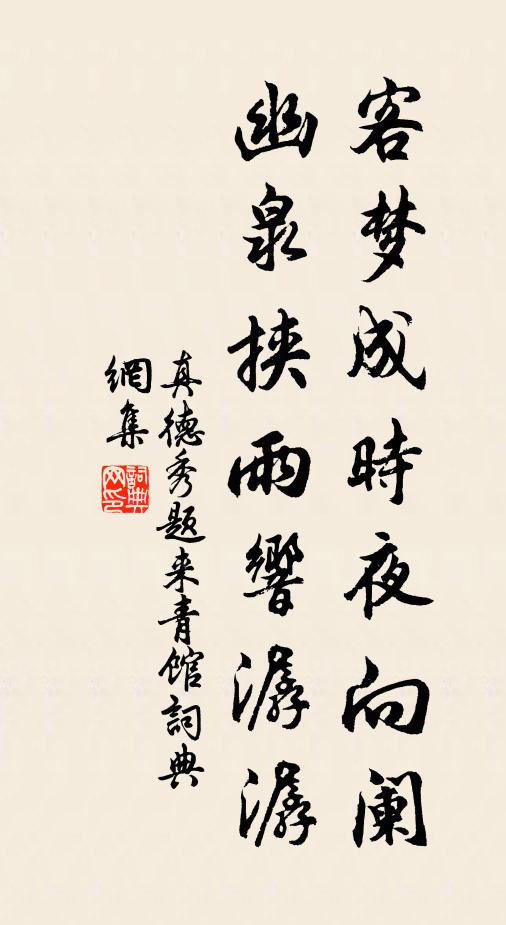 客梦成時夜向阑
幽泉挟雨響潺潺
真德秀题来青馆詞典
網集
詞典网印